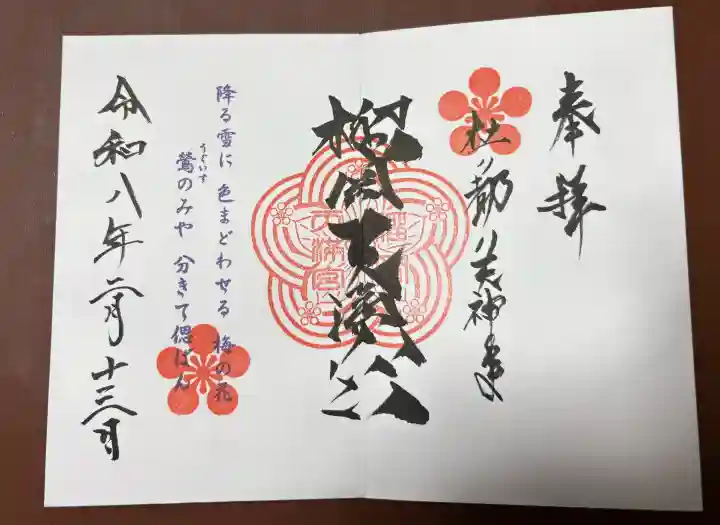 奉拝
杜ノ都ノ天神さま
榴岡天満宮
降る雪に 色まどわせる 梅の花
うぐいす
鶯のみや 分きて偲ばん
令和八年二月十三日